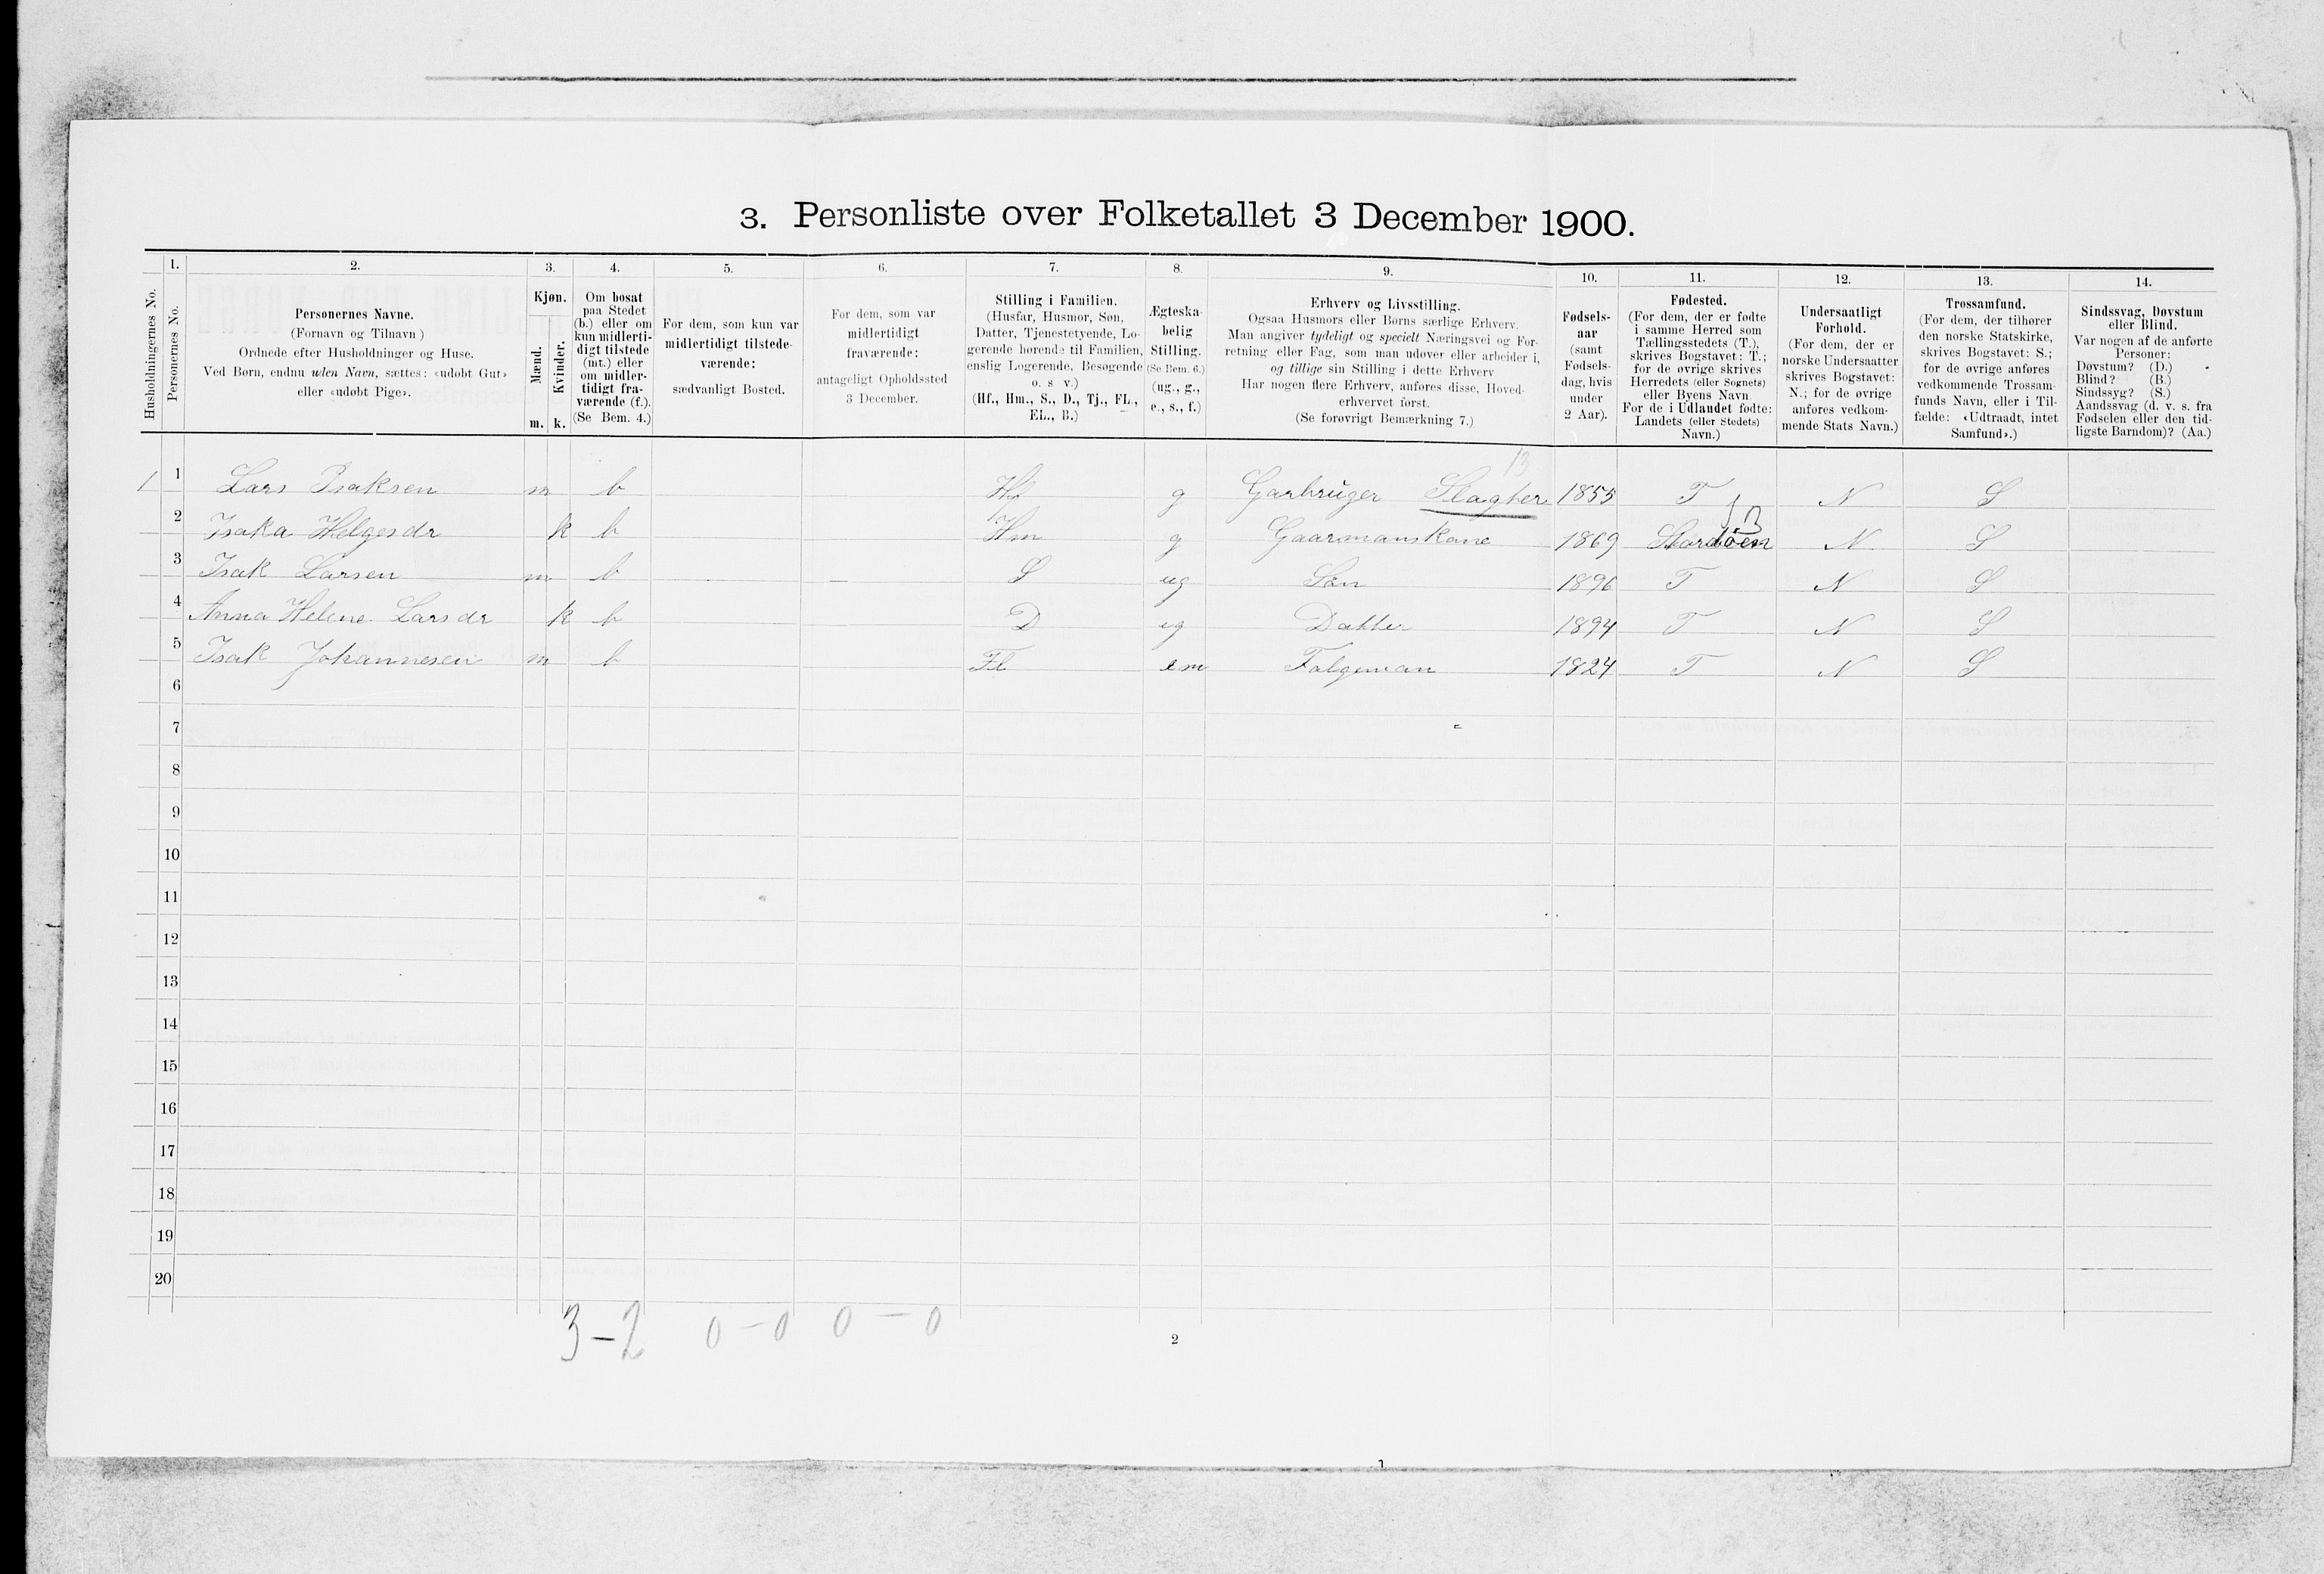 3. Personliste over Folketallet 3 December 1900.
1. 2. 3. 4. 5. 6. 7. 8. 9. 10. 11. 12. 13. 14.
Husholdningernes No.
Personernes No.
Personernes Navne.
(Fornavn og Tilnavn)
Ordnede efter Husholdninger og Huse.
Ved Børn, endnu uden Navn, sættes: «udøbt Gut»
eller «udøbt Pige».
Kjøn.
Mænd.
Kvinder.
m. k.
Om bosat
paa Stedet
(b.) eller om
kun midlerti-
digt tilstede
(mt.) eller
om midler-
tidigt fra-
værende (f.).
(Se Bem. 4.)
For dem, som kun var
midlertidigt tilstede-
værende:
sædvanligt Bosted.
For dem, som var
midlertidigt
fraværende:
antageligt Opholdssted
3 December.
Stilling i Familien.
(Husfar, Husmor, Søn,
Datter, Tjenestetyende, Lo-
gerende hørende til Familien,
enslig Logerende, Besøgende
o. s v.)
(Hf., Hm., S., D., Tj., FL.,
EL., B.)
Ægteska-
belig
Stilling.
(Se Bem. 6.)
(ug., g.,
e., s., f.)
Erhverv og Livsstilling.
Ogsaa Husmors eller Børns særlige Erhverv.
Man angiver tydeligt og specielt Næringsvei og For-
retning eller Fag, som man udøver eller arbeider i,
og tillige sin Stilling i dette Erhverv
Har nogen flere Erhverv, anføres disse, Hoved-
erhvervet først.
(Se forøvrigt Bemærkning 7.)
Fødsels-
aar
(samt
Fødsels-
dag, hvis
under
2 Aar).
Fødested.
(For dem, der er fødte
i samme Herred som
Tællingsstedets (T.),
skrives Bogstavet: T.;
for de øvrige skrives
Herredets (eller Sognets)
eller Byens Navn
For de i Udlandet fødte:
Landets (eller Stedets)
Navn.)
Undersaatligt
Forhold.
(For dem, der er
norske Undersaatter
skrives Bogstavet:
N.; for de øvrige
anføres vedkom-
mende Stats Navn.)
Trossamfund.
(For dem, der tilhører
den norske Statskirke,
skrives Bogstavet: S.;
for de øvrige anføres
vedkommende Trossam-
funds Navn, eller i Til-
fælde: «Udtraadt, intet
Samfund».)
Sindssvag, Døvstum
eller Blind.
Var nogen af de anførte
Personer:
Døvstum? (D.)
Blind? (B.)
Sindssyg? (S.)
Aandssvag (d. v. s. fra
Fødselen eller den tid-
ligste Barndom)? (Aa.)
13
1 1 Lars Isaksen m b Hf g Garbruger Slagter 1855 T N S
2 Isaka Helgesdr k b Hm g Gaarmanskone 1869 Stordøen 13 N S
3 Isak Larsen m b S ug Søn 1896 T N S
4 Anna Helene Larsdr k b D ug Datter 1894 T N S
5 Isak Johannesen m b Fl em Folgeman 1824 T N S
6
7
8
9
10
11
12
13
14
15
16
17
18
19
20
3-2 0-0 0-0
2